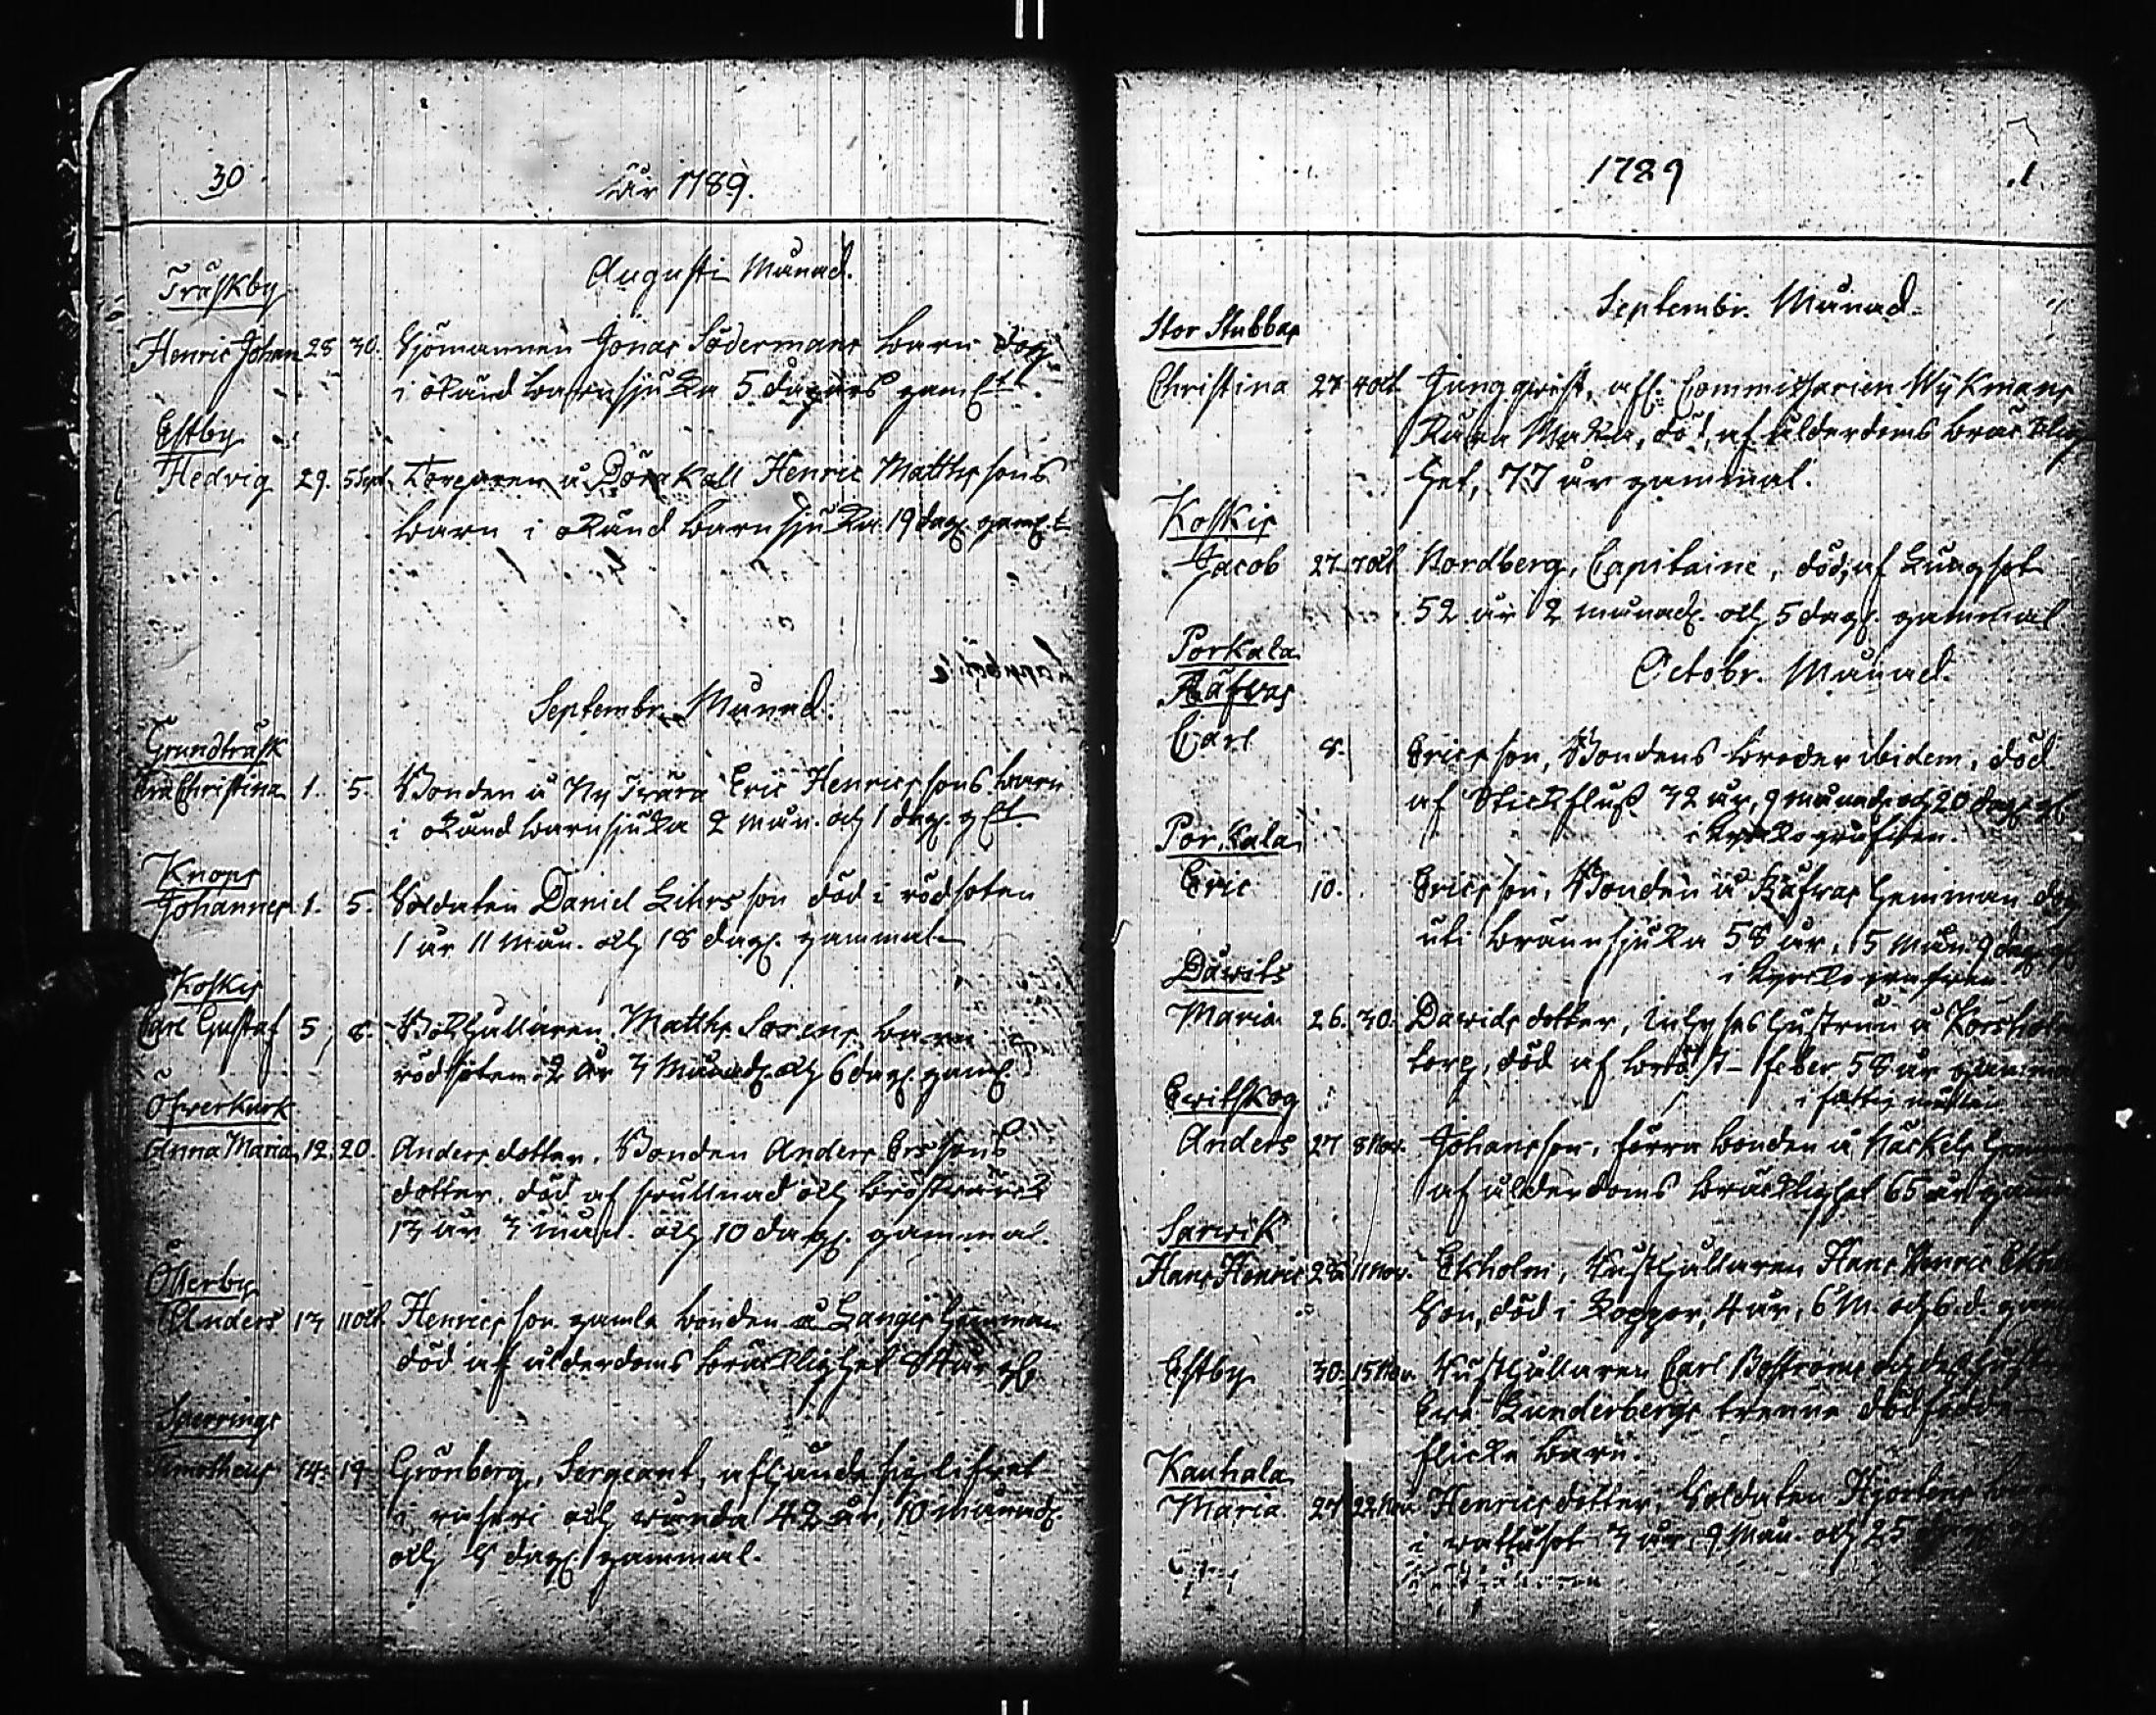 30
år 1789.
Augusti Månad.
Träskby
Henric Johan 28 30. Sjömannen Jonas Södermans barn dog
i okänd barnsjuka 5 dagars gamlt
Estby
Hedvig 29. 5 Sept. Torparen å Böra Kall Henric Matthssons
barn i okänd barnsjuka 19 dag. gaml.t
Septembr. Månad.
Grundträsk
Christina 1. 5. Bonden å Ny Träsra Eric Henricssons barn
i okänd barnsjuka 2 mån. och 1 dag. glt.
Knops
Johannes 1. 5. Soldaten Daniel son död i rödsoten
1 år 11 mån. och 18 dag. gammal
Koskis
Carl Gustaf 5, 8. Matths barn i
rödsoten 2 år 3 månad. och 6 dag. gaml.
Öfverkurk
Anna Maria 12. 20. Andersdotter, Bonden Anders Erssons
dotter, död af svullnad och bröstvärck
13 år 3 mån. och 10 dag. gammal.
Österby
Anders 13 11 Oct Henricsson gamla bonden å Langis hemman
död af ålderdoms bräcklighet 84 år gl
Sperrings
Timotheus 14. 19 Grönberg, Sergeant, afhände sig lifvet
i raseri och 42 år, 10 månad.
och 5 dag. gammal.
1789
Septembr. Månad.
Stor Stubbas
Christina 27 4 Oct Ljungqvist, afl. Commissarien Wykmans
Kära Maka, död af ålderdoms bräcklig
het, 77 år gammal.
Koskis
Jacob 27. 7 Oct Nordberg, Capitaine, död af Lungsot
52 år 2 månad. och 5 dag. gammal
Porkala
Räfvas
Octobr. Månad.
Carl 8. Ericsson, Bondens broder ibidem, död
af Stickfluss 32 år, 9 månad. och 20 dag. gl
i kyrkografven.
Porkala
Eric 10. Ericsson, Bonden å Räfvas hemman dog
uti brännsjuka 58 år, 5 mån. 9 dag. gl
i kyrkografven
Dåvits
Maria 26. 30. Davidsdotter, hustrun å
torp, död af bröst-feber 58 år gammal
Evitskog
Anders 27 8 Nov. Johansson, förra bonden å
af ålderdoms bräcklighet 65 år
Sarvik
Hans Henric 28 11 Nov. Ekholm, Kusthållaren Hans Henric
Son, död i koppor, 4 år, 6 M. och 6 d.
Estby 30. 15 Nov. Kusthållaren Carl Boströms och dess
Lunderbergs trenne dödfödde
flicke barn.
Kauhala
Maria 27 22 Nov Henricsdotter, Soldaten Hjortens
i vattusot 3 år, 9 mån. och 25